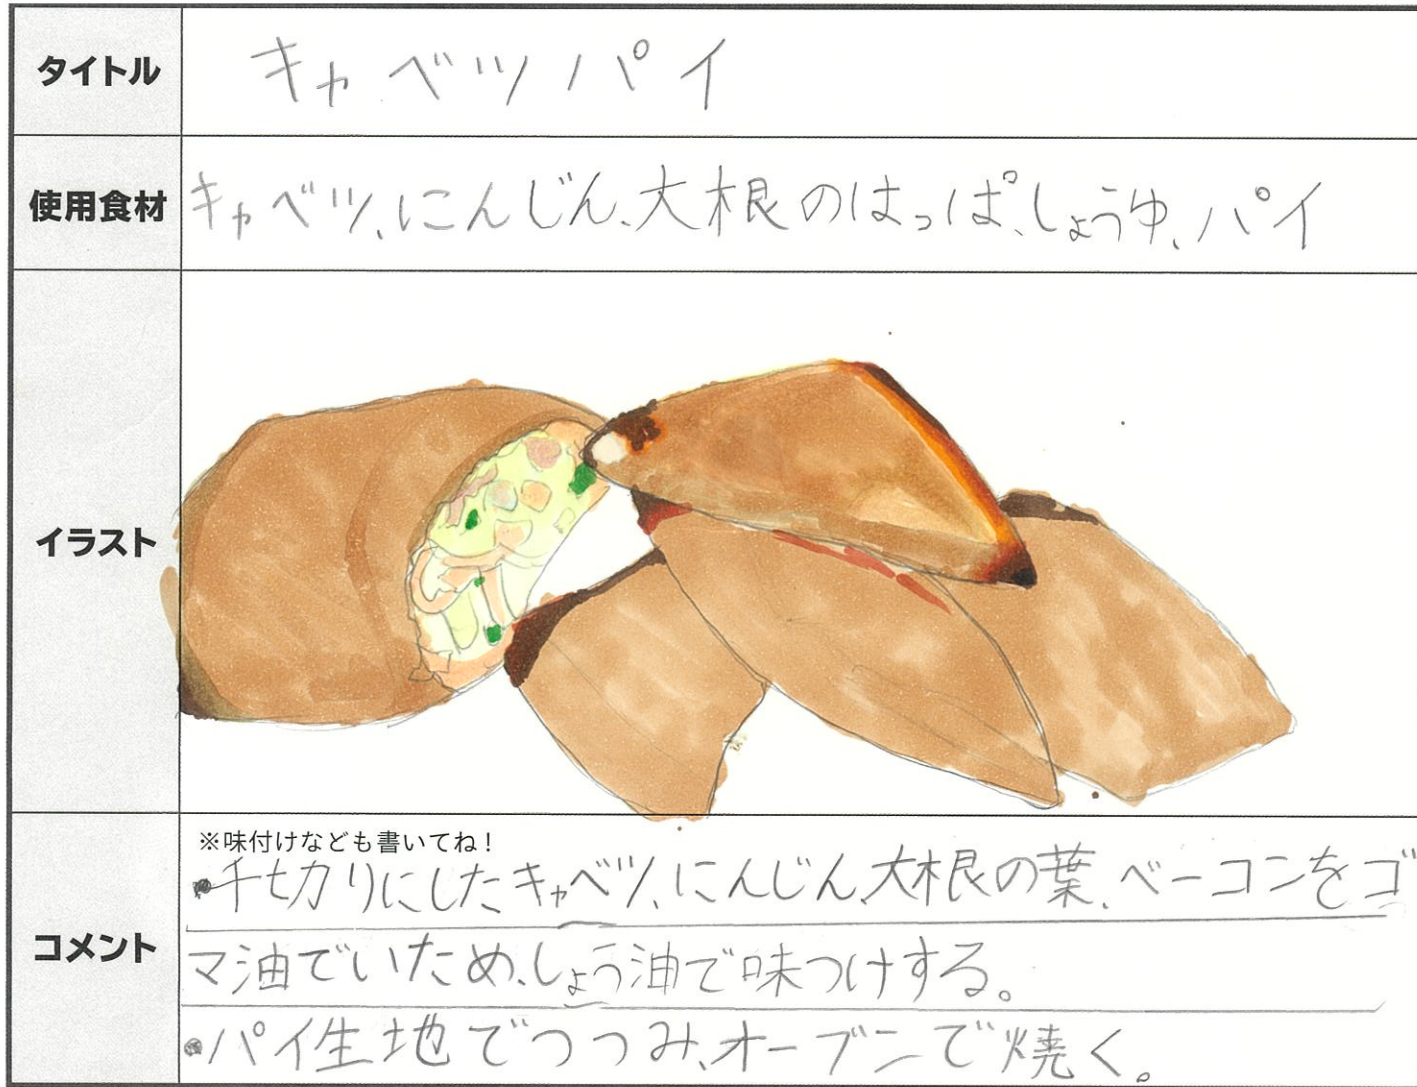 タイトル
キャベツパイ
使用食材
キャベツ、にんじん、大根のはっぱ、しょうゆ、パイ
イラスト
コメント
※味付けなども書いてね！
•千切りにしたキャベツ、にんじん、大根の葉、ベーコンをゴ
マ油でいため、しょう油で味つけする。
•パイ生地でつつみ、オーブンで焼く。